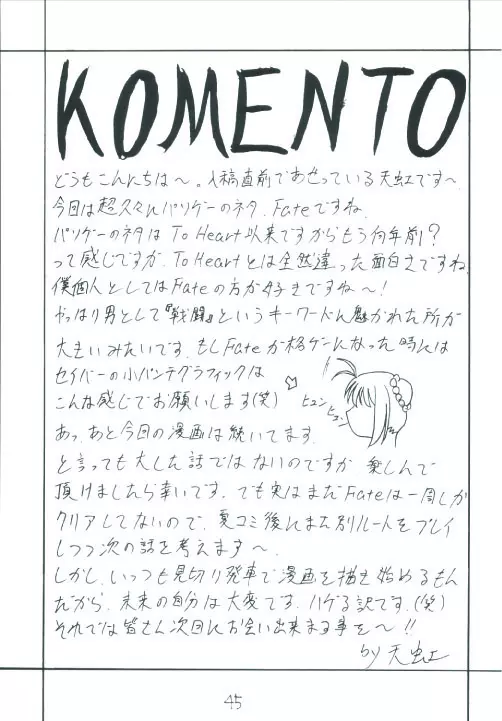 KOMENTO
どうもこんにちは〜。入稿直前であせっている天虹です〜
今回は超久々にパソゲーのネタ、Fateですね。
パソゲーのネタは To Heart以来ですからもう何年前？
って感じですが、To Heartとは全然違った面白さですね
僕個人としてはFateの方が好きですね〜！
やっぱり男として『戦闘』というキーワードに魅かれた所が
大きいみたいです。もしFateが格ゲーになった時には
セイバーの小パンチグラフィックは
こんな感じでお願いします(笑)
ヒュン
ヒュン
あっ、あと今回の漫画は続いてます。
と言っても大した話ではないのですが 楽しんで
頂けましたら幸いです。でも実はまだFateは一周しか
クリアしてないので、夏コミ後にまた別ルートをプレイ
しつつ次の話を考えます〜
しかし、いっつも見切り発車で漫画を描き始めるもん
だから、未来の自分は大変です。ハゲる訳です。(笑)
それでは皆さん次回にお会い出来ます事を〜!!
by 天虹
45